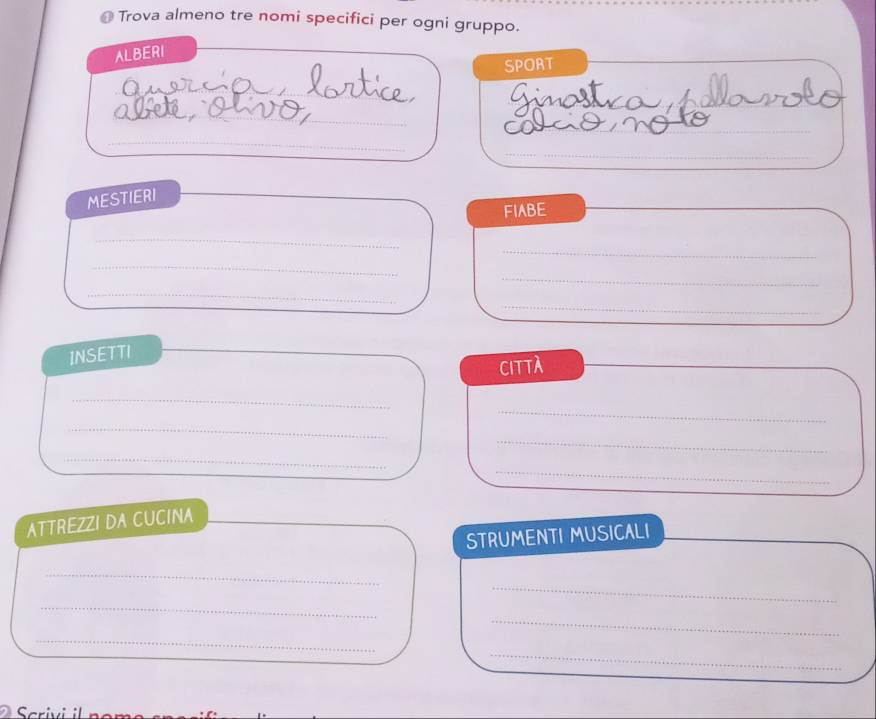 1 Trova almeno tre nomi specifici per ogni gruppo.
ALBERI
quercia, lartice,
abete, olivo,
SPORT
Ginastica, pallavolo
calcio, noto
MESTIERI
FIABE
INSETTI
CITTÀ
ATTREZZI DA CUCINA
STRUMENTI MUSICALI
2 Scrivi il